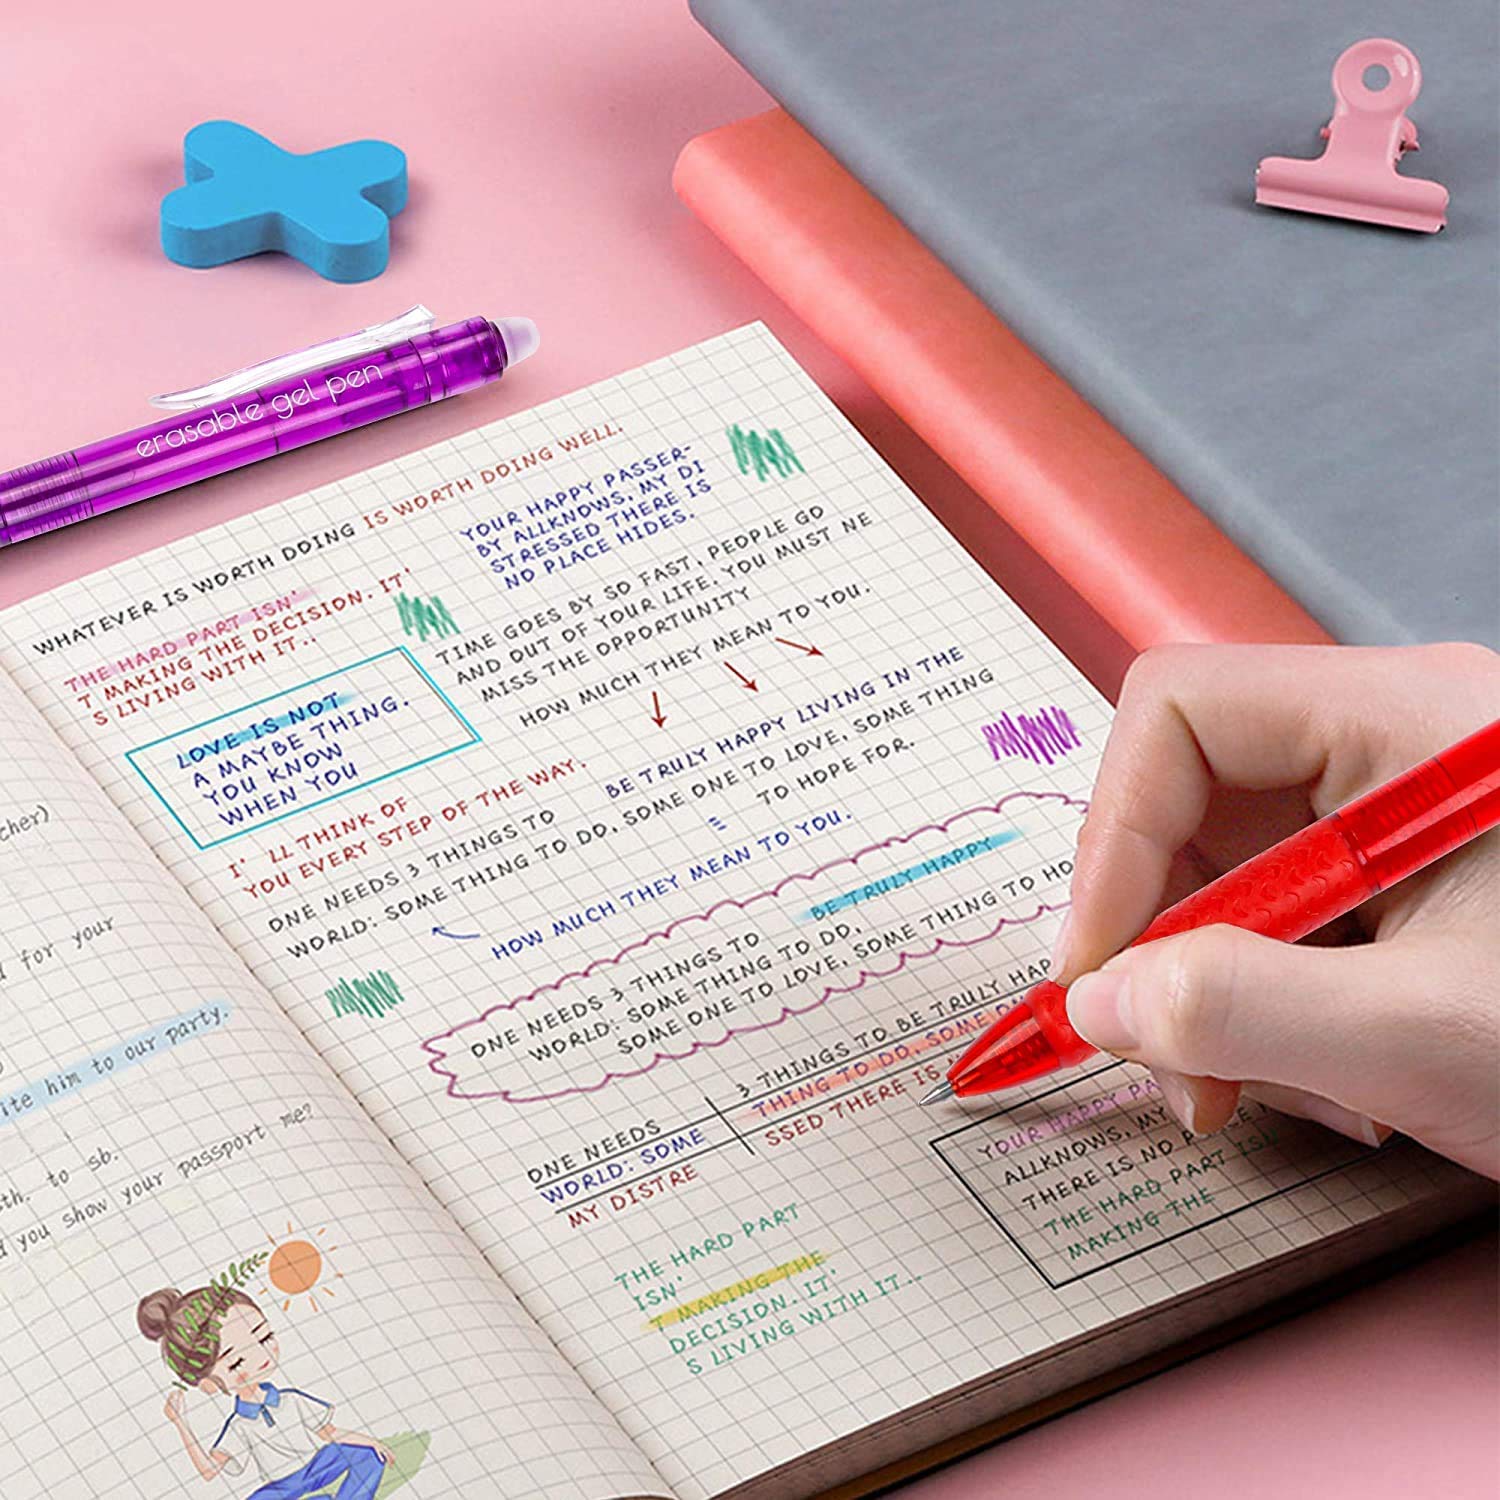 erasable gel pen
WHATEVER IS WORTH DOING IS WORTH DOING WELL.
THE HARD PART ISN'
T MAKING THE DECISION. IT'
S LIVING WITH IT..
YOUR HAPPY PASSER-
BY ALLKNOWS, MY DI
STRESSED THERE IS
NO PLACE HIDES.
TIME GOES BY SO FAST, PEOPLE GO
AND OUT OF YOUR LIFE. YOU MUST NE
MISS THE OPPORTUNITY
HOW MUCH THEY MEAN TO YOU.
LOVE IS NOT
A MAYBE THING.
YOU KNOW
WHEN YOU
BE TRULY HAPPY LIVING IN THE
I' LL THINK OF
YOU EVERY STEP OF THE WAY.
ONE NEEDS 3 THINGS TO
WORLD: SOME THING TO DO, SOME ONE TO LOVE, SOME THING
TO HOPE FOR.
HOW MUCH THEY MEAN TO YOU.
BE TRULY HAPPY
ONE NEEDS 3 THINGS TO
WORLD: SOME THING TO DO,
SOME ONE TO LOVE, SOME THING TO HO
3 THINGS TO BE TRULY HAP
THING TO DO, SOME ON
SSED THERE IS
ONE NEEDS
WORLD: SOME
MY DISTRE
YOUR HAPPY PA
ALLKNOWS, MY
THERE IS NO PLACE
THE HARD PART ISN
MAKING THE
THE HARD PART
ISN'
T MAKING THE
DECISION. IT'
S LIVING WITH IT..
cher)
for your
ite him to our party.
sth. to sb.
you show your passport me?